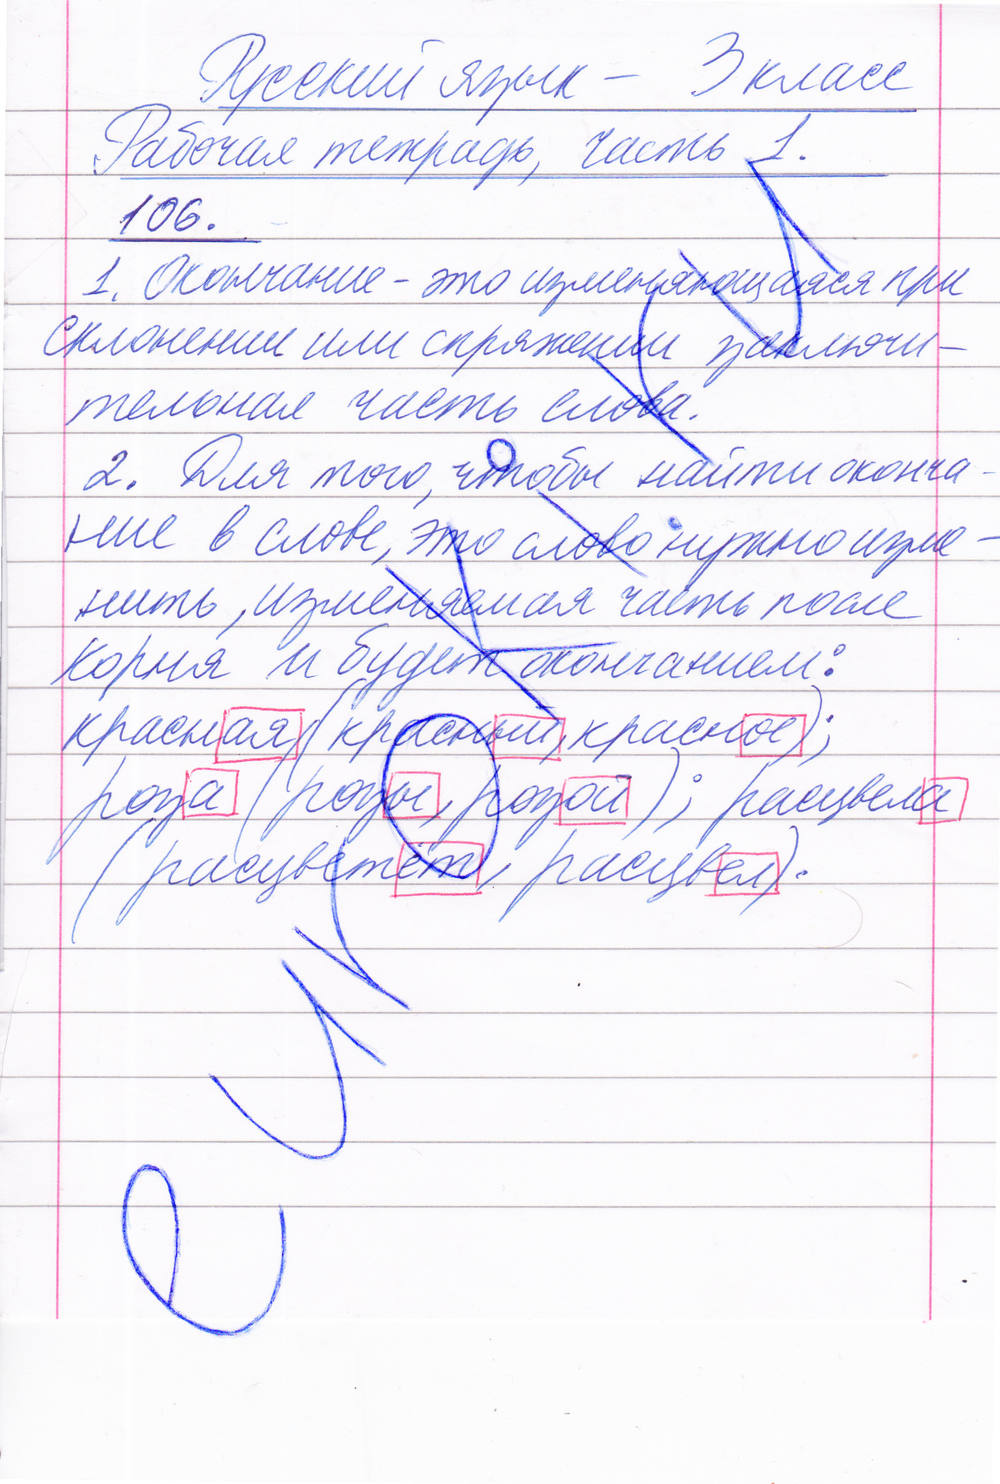 Русский язык – 3 класс
Рабочая тетрадь, часть 1.
106.
1. Окончание – это изменяющаяся при
склонении или спряжении заключи-
тельная часть слова.
2. Для того, чтобы найти оконча-
ние в слове, это слово нужно изме-
нить, изменяемая часть после
корня и будет окончанием:
красная (красный, красное);
роза (розы, розой); расцвела
(расцветёт, расцвел).